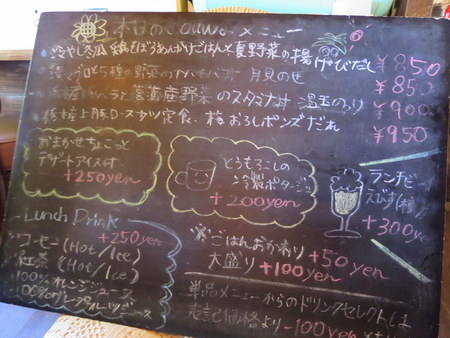 村の メニュー
冷やし冬瓜 鶏そぼろあんかけごはんと夏野菜の揚げびたし ￥850
5種の野菜の 月見のせ ￥850
野菜のスタミナ丼 温玉のっけ ￥900
上豚ロースカツ定食、梅おろしポンズだれ ￥950
おまかせちょこっと
デザートアイス付
+250yen
とうもろこしの
冷製ポタージュ
+200yen
ランチビール
+300yen
Lunch Drink
+250yen
コーヒー(Hot/Ice)
紅茶(Hot/Ice)
100%オレンジジュース
100%グレープフルーツジュース
※ごはんおかわり +50yen
大盛り +100yen
単品メニューからのドリンクセレクトは
表記価格より -100yen